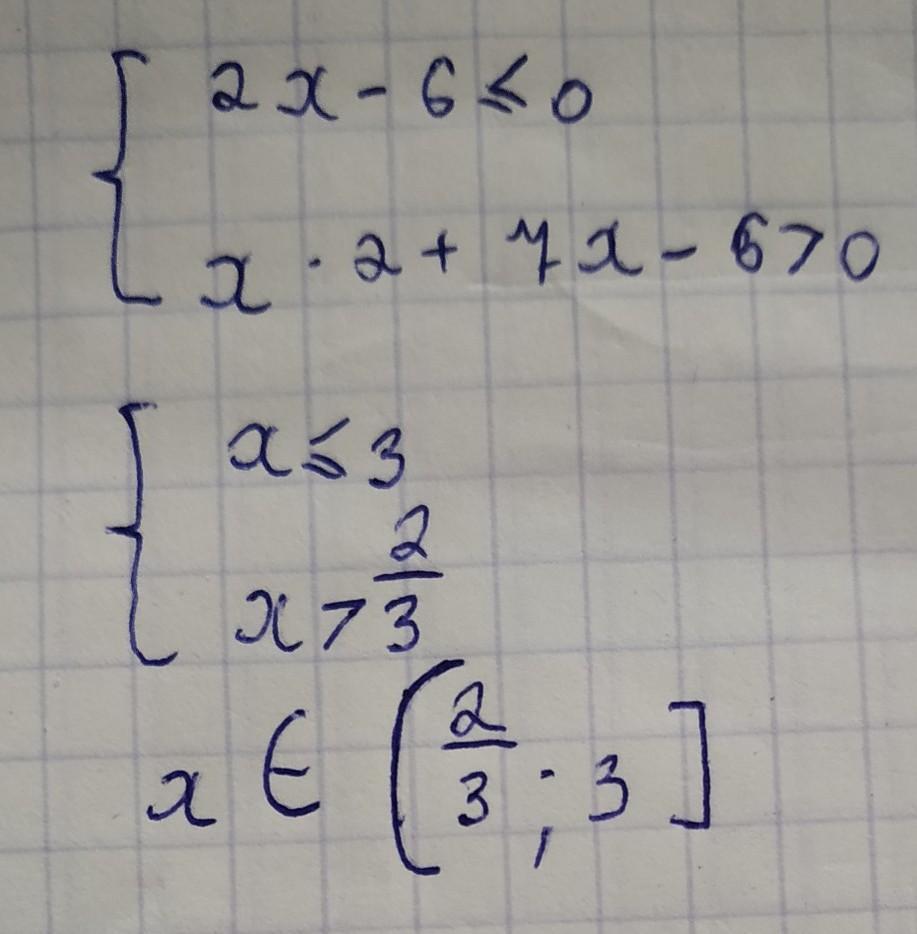 { 2x - 6 ≤ 0
x · 2 + 7x - 6 > 0
{ x ≤ 3
x > 2/3
x ∈ (2/3 ; 3]